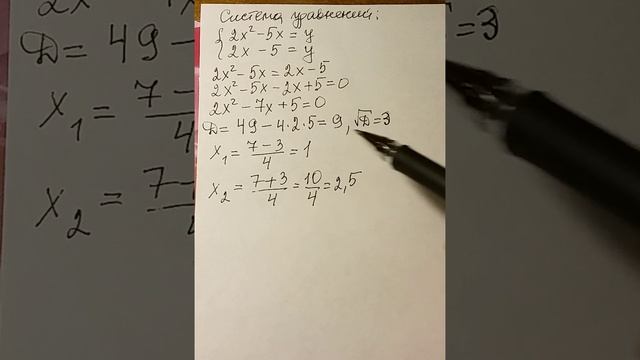 Система уравнений:
{ 2x² - 5x = y
{ 2x - 5 = y
2x² - 5x = 2x - 5
2x² - 5x - 2x + 5 = 0
2x² - 7x + 5 = 0
D = 49 - 4·2·5 = 9, √D = 3
x₁ = (7 - 3)/4 = 1
x₂ = (7 + 3)/4 = 10/4 = 2,5